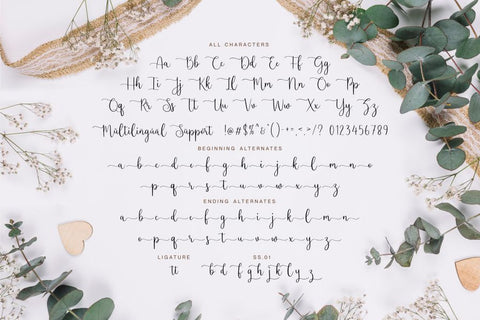 ALL CHARACTERS
Aa Bb Cc Dd Ee Ff Gg
Hh Ii Jj Kk Ll Mm Nn Oo Pp
Qq Rr Ss Tt Uu Vv Ww Xx Yy Zz
Multilingual Support !@#$%^&*()-+=,<.>/? 0123456789
BEGINNING ALTERNATES
a b c d e f g h i j k l m n o
p q r s t u v w x y z
ENDING ALTERNATES
a b c d e f g h i j k l m n
o p q r s t u v w x y z
LIGATURE SS.01
tt b d f g h j k l y z